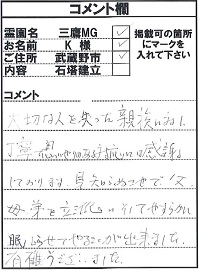 コメント欄
霊園名 三鷹MG ✓
お名前 K 様 ✓
ご住所 武蔵野市 ✓
内容 石塔建立
掲載可の箇所
にマークを
入れて下さい
コメント
大切な人を失った親族に対し
丁寧 思いやりのある 感謝
しております。見知らぬ
母 立派 そしてやすらかに
眠らせてやることが出来ました。
有難うございました。